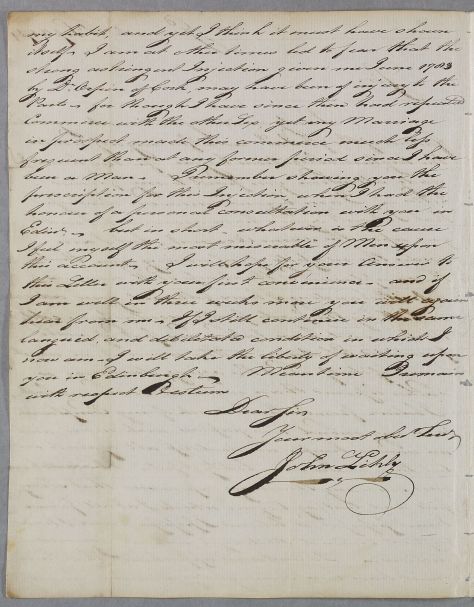 my habit, and yet I think it must have shown
itself, I am at other times led to fear that the
strong astringent Injection given in June 1783
by Dr. of Cork may have been of injury to the
Parts, for though I have since then had repeated
Commerce with the other Sex, yet my Marriage
in prospect made this commerce much less
frequent than at any former period since I have
been a Man. I remember shewing you the
prescription for this Injection when I had the
honour of a personal consultation with you in
Edinr., but in short whatever is the cause
I feel myself the most miserable of Men upon
this account, I will hope for your Answer to
this Letter with your first convenience and if
I am well in three weeks more you will again
hear from me, If I still continue in the same
languid and debilitated condition in which I
now am I will take the liberty of waiting upon
you in Edinburgh. Meantime I remain
with respect & esteem
Dear Sir
Your most Obt Servt
John